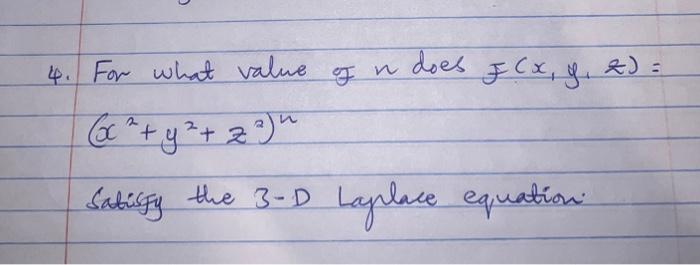 4. For what value of n does F(x, y, z) =
(x²+y²+z²)ⁿ
Satisfy the 3-D Laplace equation.